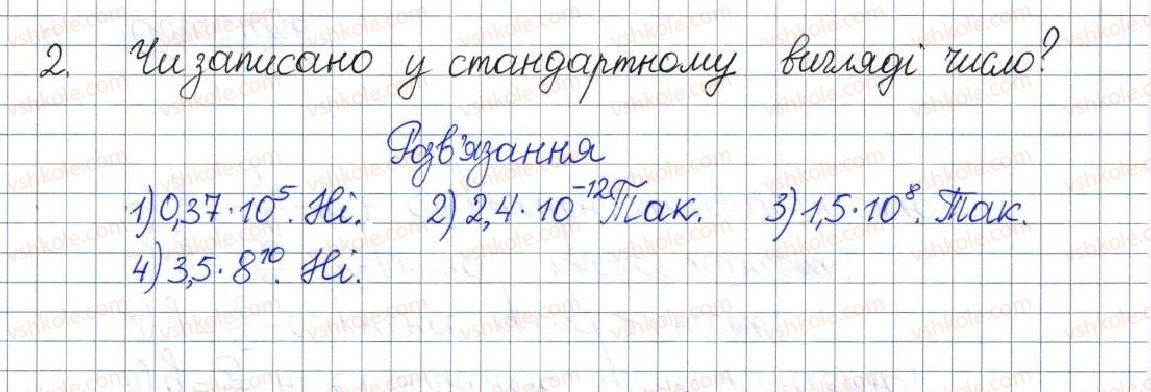 2. Чи записано у стандартному вигляді число?
Розв'язання
1) 0,37·10⁵. Ні. 2) 2,4·10⁻¹² Так. 3) 1,5·10⁸. Так.
4) 3,5·8¹⁰. Ні.